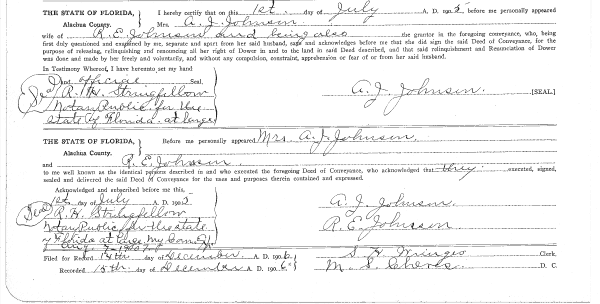 THE STATE OF FLORIDA, } I hereby certify that on this 1st. day of July A. D. 190 5 before me personally appeared
Alachua County. Mrs. A. J. Johnson.
wife of R. E. Johnson and being also the grantor in the foregoing conveyance, who, being
first duly questioned and examined by me, separate and apart from her said husband, says and acknowledges before me that she did sign the said Deed of Conveyance, for the
purpose of releasing, relinquishing and renouncing all her right of Dower in and to the land in said Deed described, and that said relinquishment and Renunciation of Dower
was done and made by her freely and voluntarily, and without any compulsion, constraint, apprehension or fear of or from her said husband.
In Testimony Whereof, I have hereunto set my hand
and official Seal,
Seal R. H. Stringfellow A. J. Johnson. [SEAL.]
Notary Public for the
State of Florida. at large
THE STATE OF FLORIDA, } Before me personally appeared Mrs. A. J. Johnson.
Alachua County.
and R. E. Johnson
to me well known as the identical persons described in and who executed the foregoing Deed of Conveyance, who acknowledged that they executed, signed,
sealed and delivered the said Deed of Conveyance for the uses and purposes therein contained and expressed.
Acknowledged and subscribed before me this,
1st. day of July A. D. 190 5 A. J. Johnson.
Seal R. H. Stringfellow R. E. Johnson
Notary Public for the state
of Florida at large. My Com
Filed for Record 14th day of December A. D. 190 6. S. H. Wienges Clerk.
Recorded 15th. day of December A. D. 190 6. M. S. Cheves D. C.